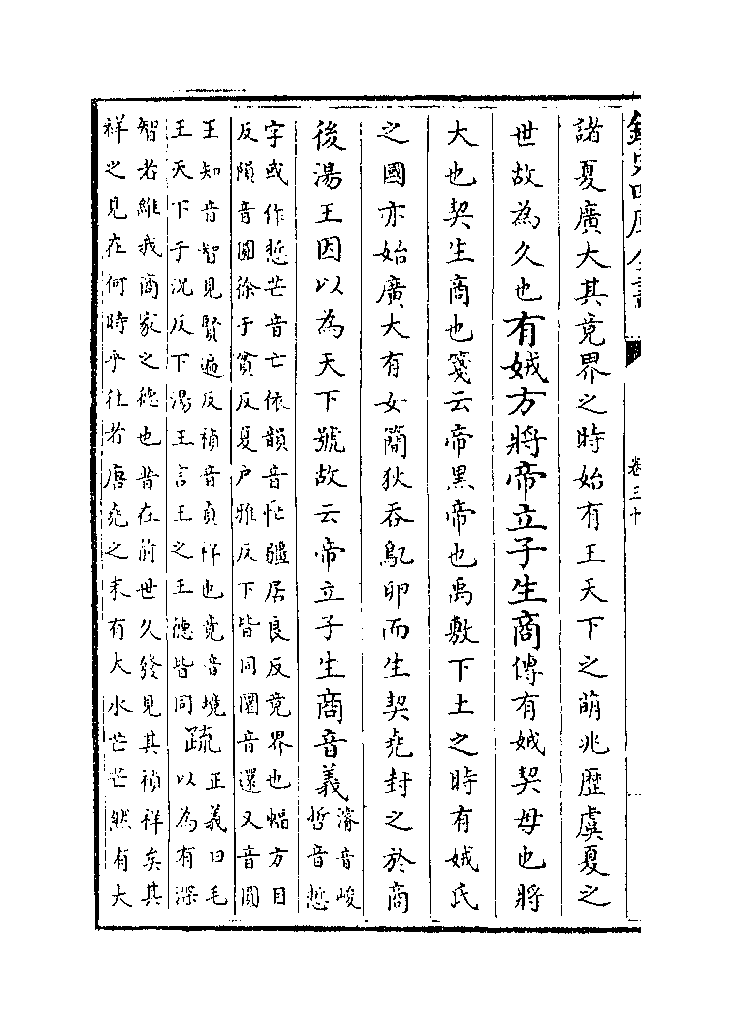 欽定四庫全書
卷三十
諸夏廣大其竟界之時始有王天下之萌兆歷虞夏之
世故為久也有娀方將帝立子生商傳有娀契母也將
大也契生商也箋云帝黑帝也禹敷下土之時有娀氏
之國亦始廣大有女簡狄吞鳦卵而生契堯封之於商
後湯王因以為天下號故云帝立子生商音義濬音峻
哲音悊
字或作悊芒音亡依韻音忙疆居良反竟界也幅方目
反隕音圓徐于貧反夏戶雅反下皆同圜音還又音圓
王知音智見賢遍反禎音貞祚也竟音境
王天下于況反下湯王言王之王德皆同疏正義曰毛
以為有深
智者維我商家之德也昔在前世久發見其禎祥矣其
祥之見在何時乎往者唐堯之末有大水芒芒然有大